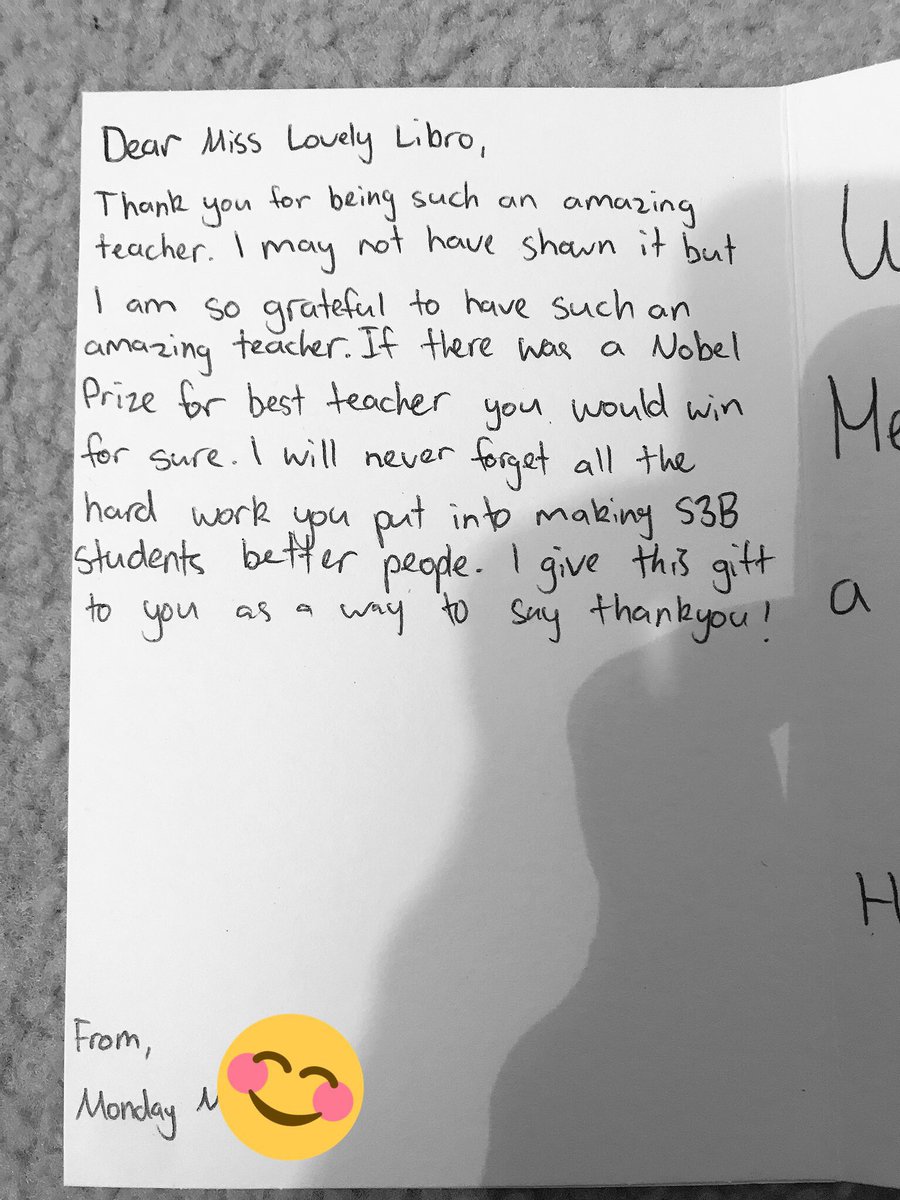 Dear Miss Lovely Libro,
Thank you for being such an amazing
teacher. I may not have shown it but
I am so grateful to have such an
amazing teacher. If there was a Nobel
Prize for best teacher you would win
for sure. I will never forget all the
hard work you put into making S3B
students better people. I give this gift
to you as a way to say thankyou!
From,
Monday M
a